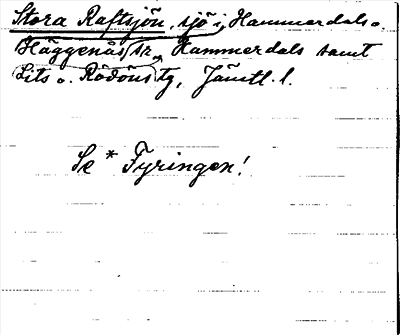 Stora Raftsjön, sjö i Hammerdals o.
Häggenås snr, Hammerdals samt
Lits o. Rödöns tg, Jämtl. l.
Se * Fyringen!